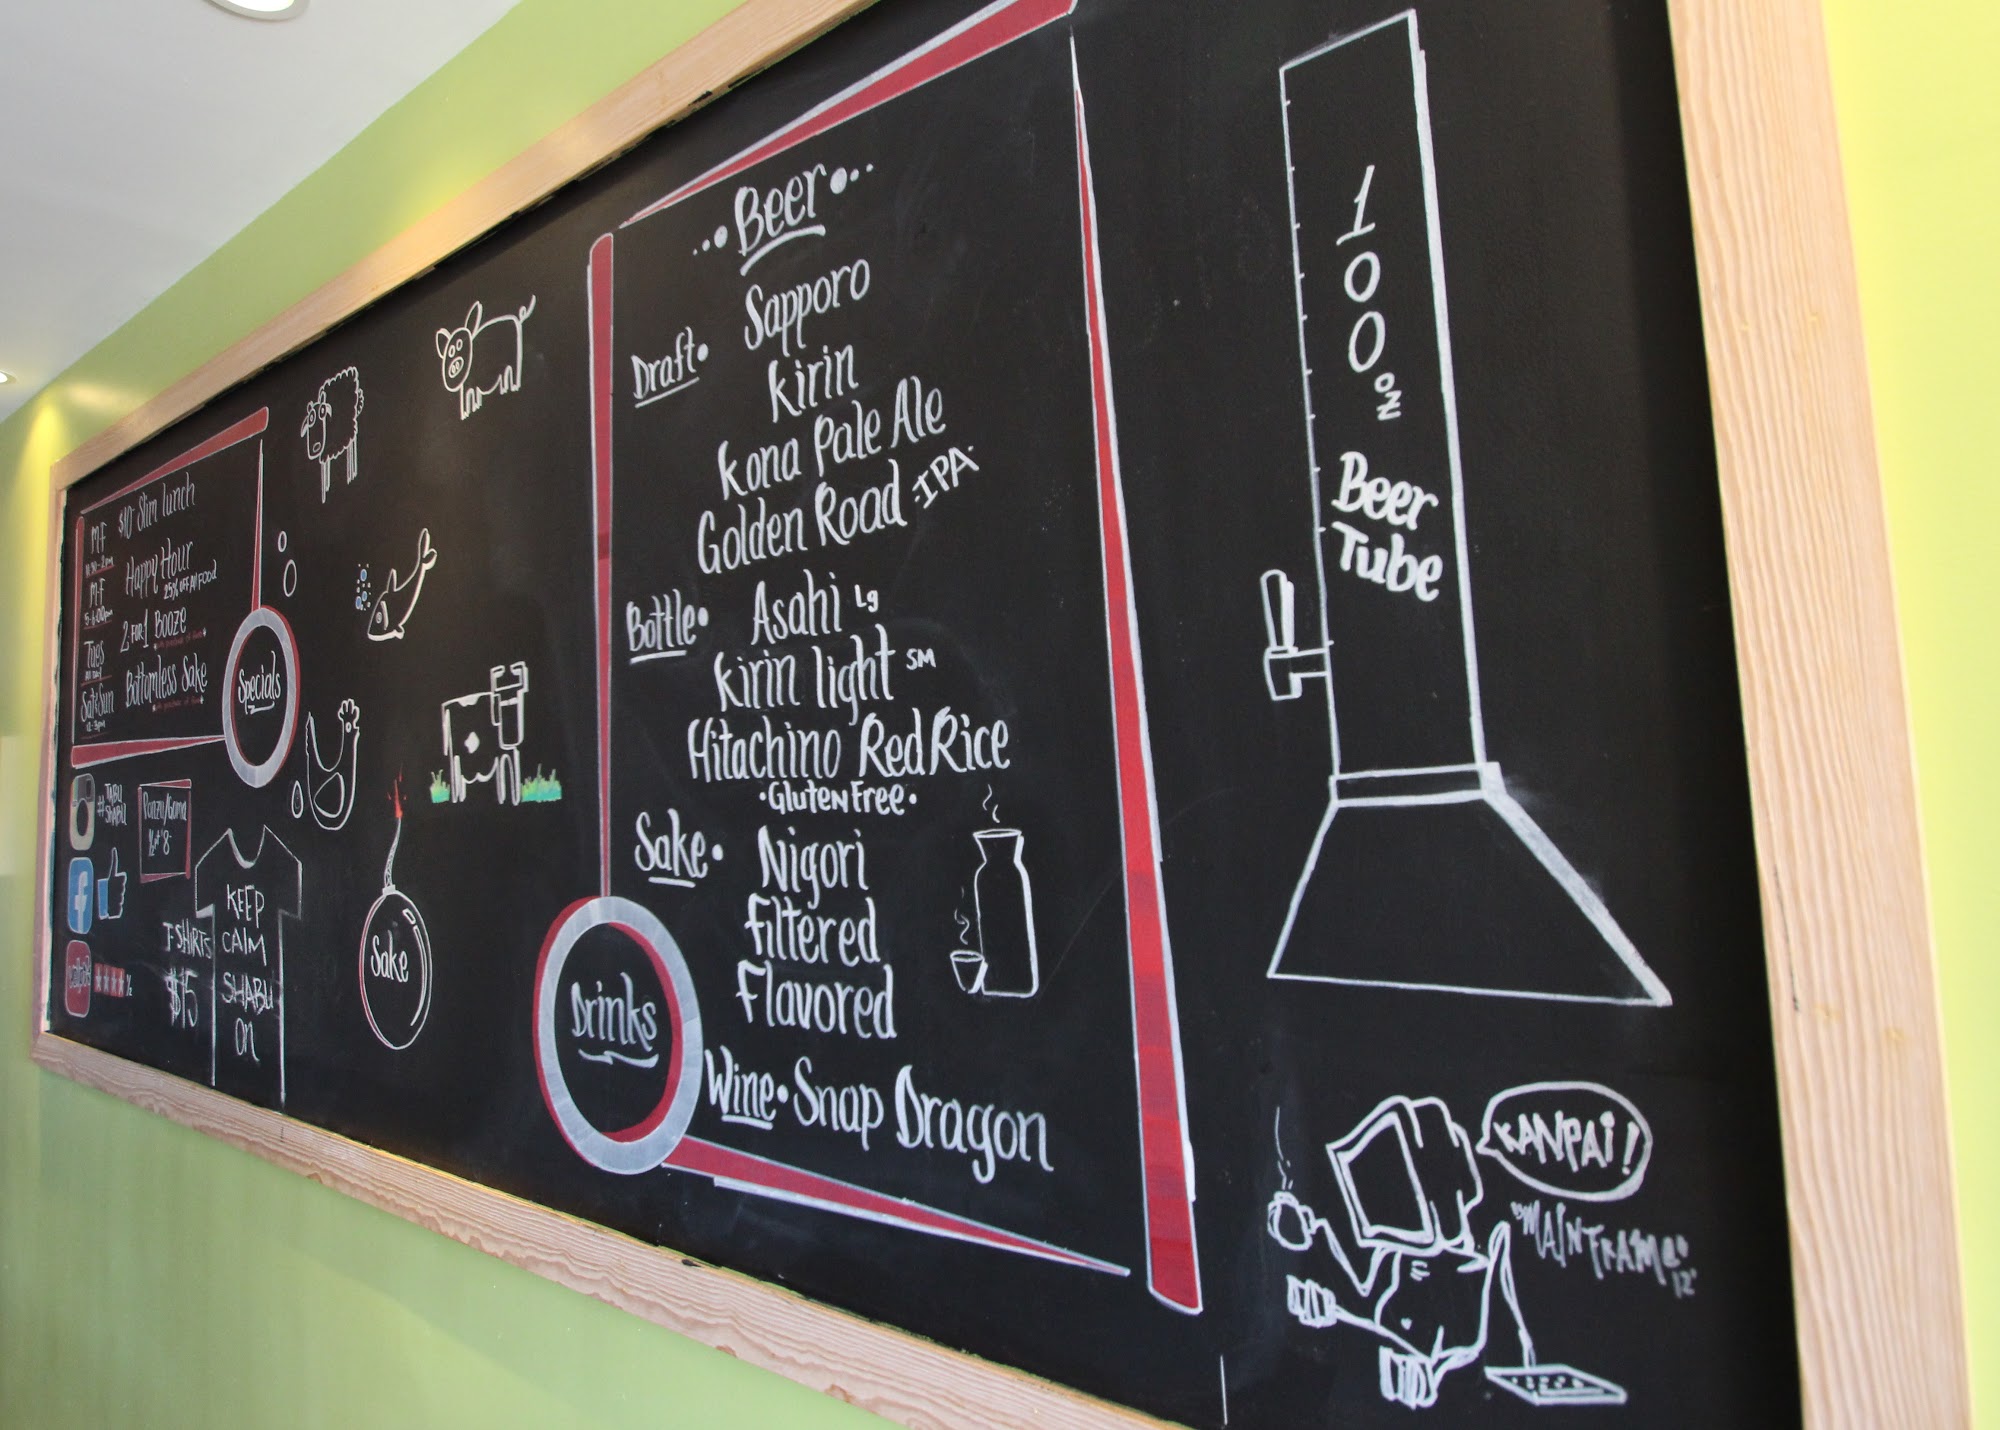 M-F $10- Slim lunch
M-F Happy Hour
5-6:00pm 25% OFF All FOOD
Tues 2-FOR-1 Booze
All day
Sat&Sun Bottomless Sake
12-3pm
Specials
#TABU
SHABU
Ponzu/Goma
T-SHIRTS
$15
KEEP
CALM
SHABU
ON
Sake
Beer
Draft• Sapporo
Kirin
Kona Pale Ale
Golden Road -IPA-
Bottle• Asahi Lg
Kirin light SM
Hitachino Red Rice
•Gluten Free•
Sake• Nigori
Filtered
Flavored
Drinks
Wine• Snap Dragon
100 oz
Beer
Tube
KANPAi!
"MAINFRAME"
12'